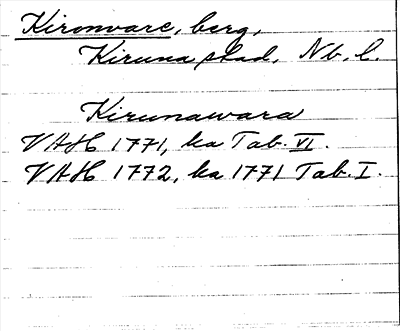 Kironvare, berg,
Kiruna stad, Nb. l.
Kirunawara
VAH 1771, ka Tab. VI.
VAH 1772, ka 1771 Tab. I.